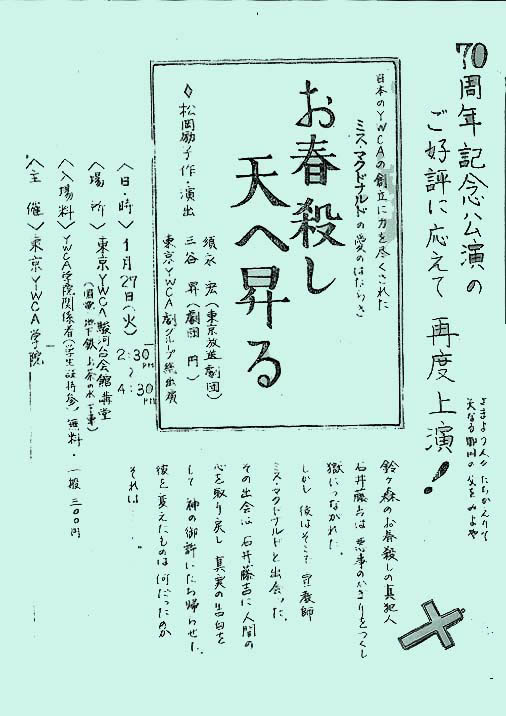 70周年記念公演の
ご好評に応えて 再度上演!
さまよう人々 たちかえりて
天なる御国の 父をみよや
日本のYWCAの創立に力を尽くされた
ミス・マクドナルドの愛のはたらき
お春殺し
天へ昇る
◊ 松岡励子 作・演出
須永 宏(東京放送劇団)
三谷 昇(劇団 円)
東京YWCA劇グループ総出演
鈴ヶ森のお春殺しの真犯人
石井藤吉は 悪事のかぎりをつくし
獄につながれた。
しかし 彼はそこで 宣教師
ミス・マクドナルドと出会った。
その出会は 石井藤吉に人間の
心を取り戻し 真実の告白を
して 神の御許にたち帰らせた。
彼を変えたものは 何だったのか
それは……
〈日・時〉 1月27日(火) 2:30PM〜4:30PM
〈場 所〉 東京YWCA駿河台会館 講堂
(国電 地下鉄 お茶の水 下車)
〈入場料〉 YWCA学院関係者(学生証持参) 無料・一般 300円
〈主 催〉 東京YWCA学院